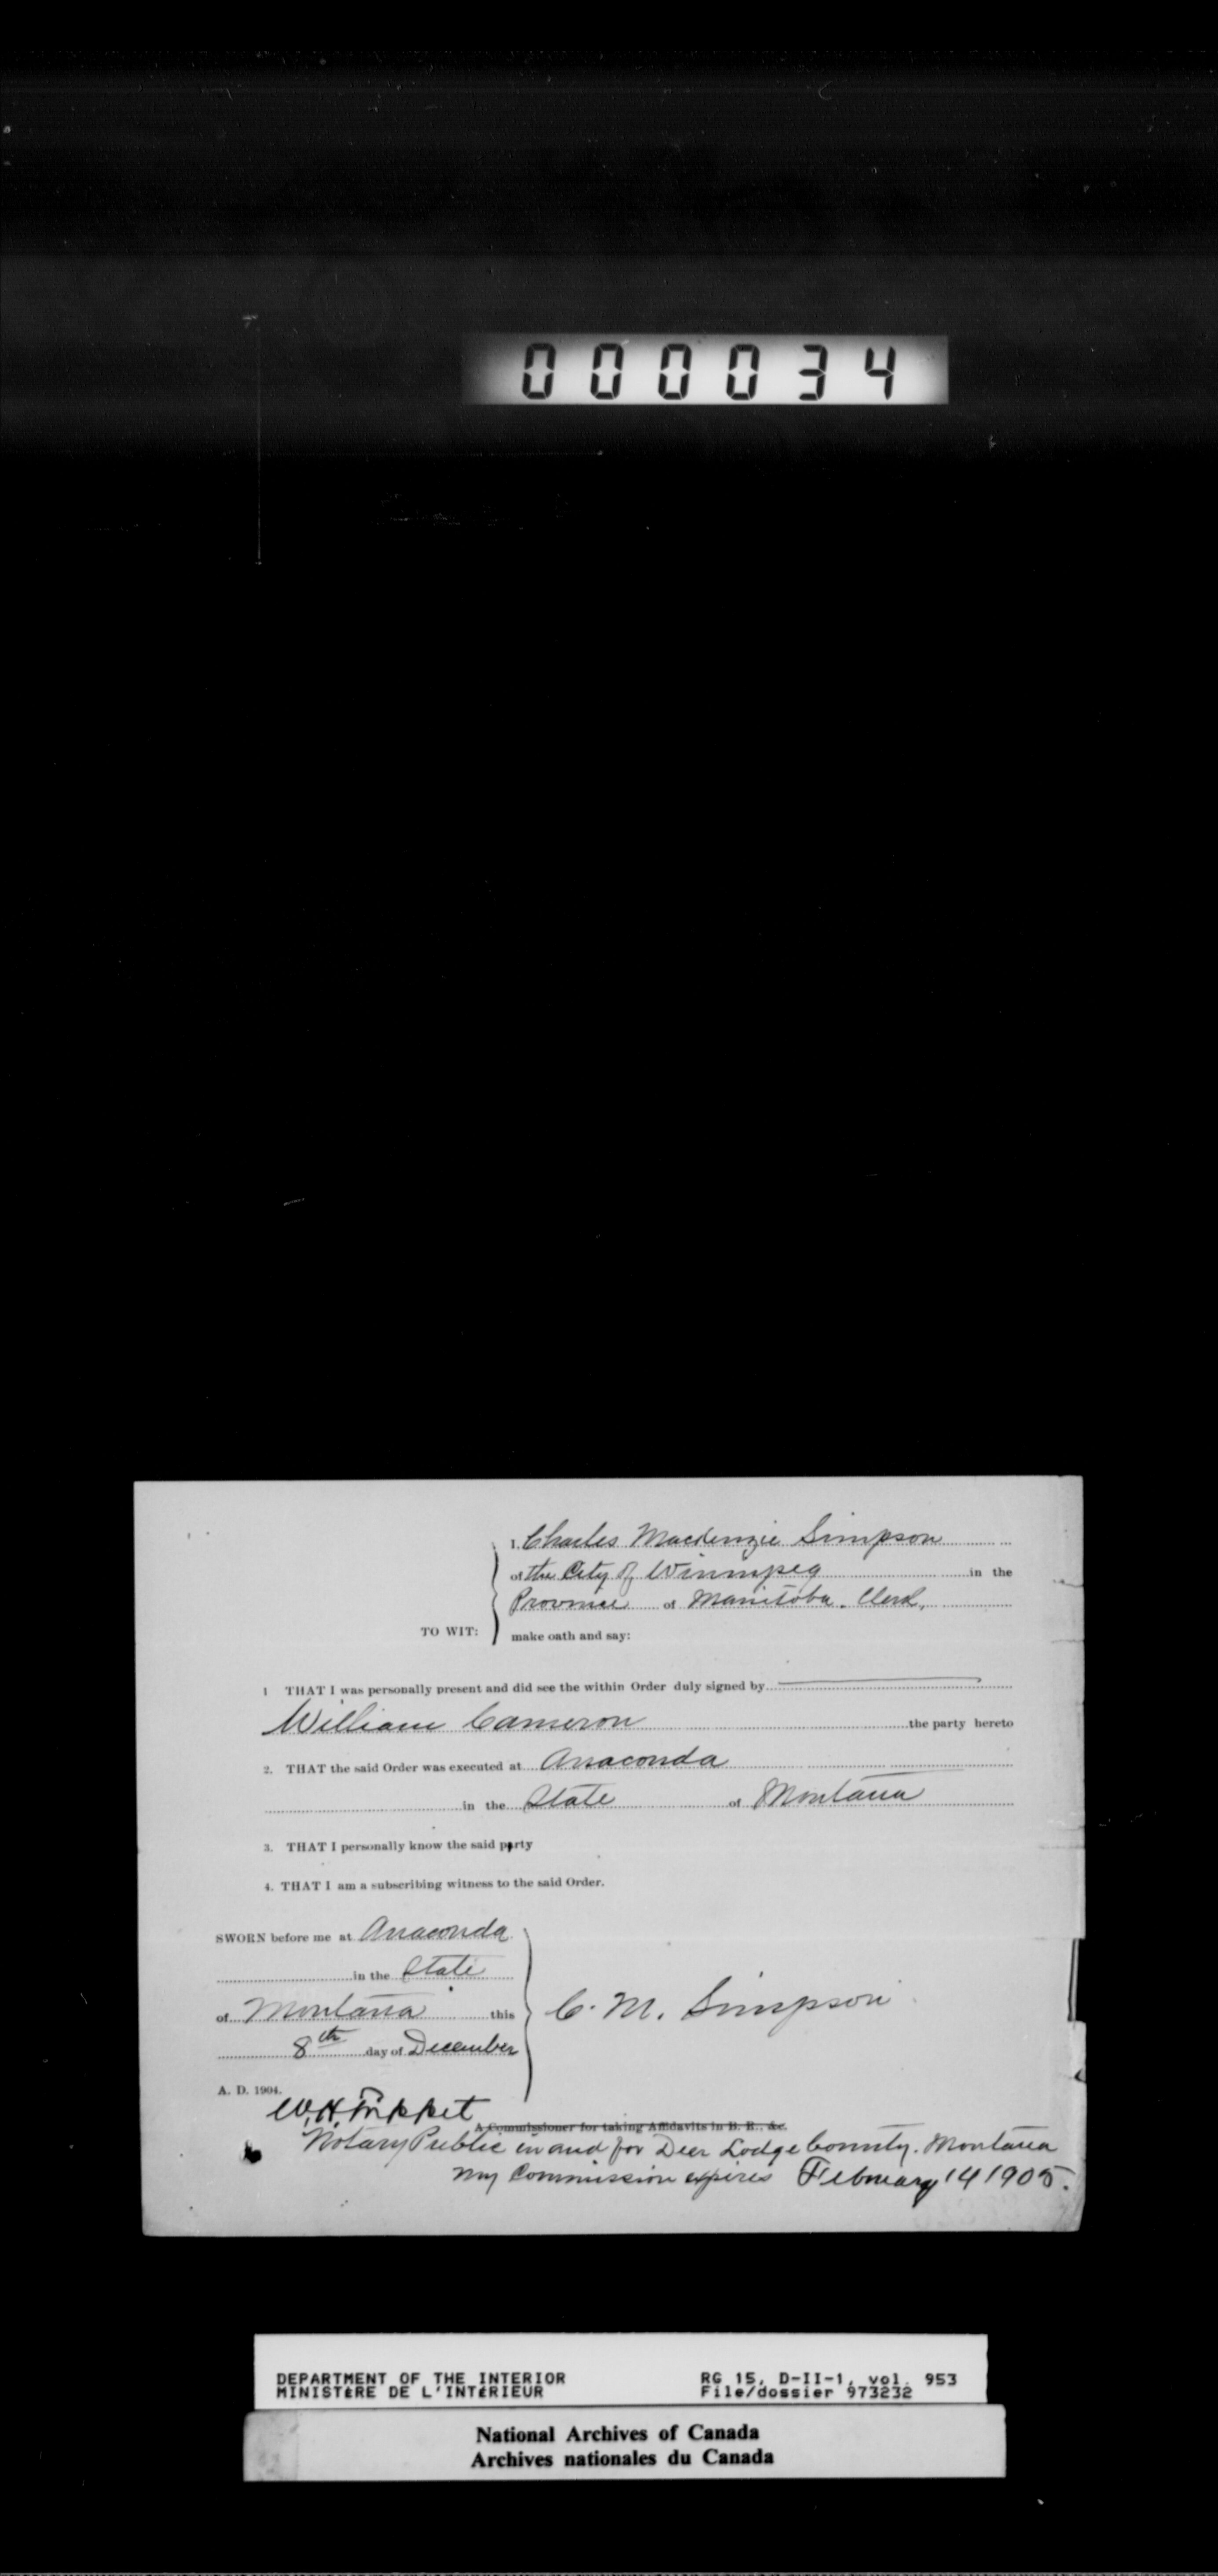 000034
I, Charles Mackenzie Simpson
of the City of Winnipeg in the
Province of Manitoba. Clerk,
TO WIT: make oath and say:
1 THAT I was personally present and did see the within Order duly signed by
William Cameron the party hereto
2. THAT the said Order was executed at Anaconda
in the State of Montana
3. THAT I personally know the said party
4. THAT I am a subscribing witness to the said Order.
SWORN before me at Anaconda
in the State
of Montana this
8th day of December
C. M. Simpson
A. D. 1904.
W. H. Trippet
A Commissioner for taking Affidavits in B. R., &c.
Notary Public in and for Deer Lodge County. Montana
My Commission expires February 14 1905.
DEPARTMENT OF THE INTERIOR RG 15, D-II-1, vol. 953
MINISTÈRE DE L'INTÉRIEUR File/dossier 973232
National Archives of Canada
Archives nationales du Canada